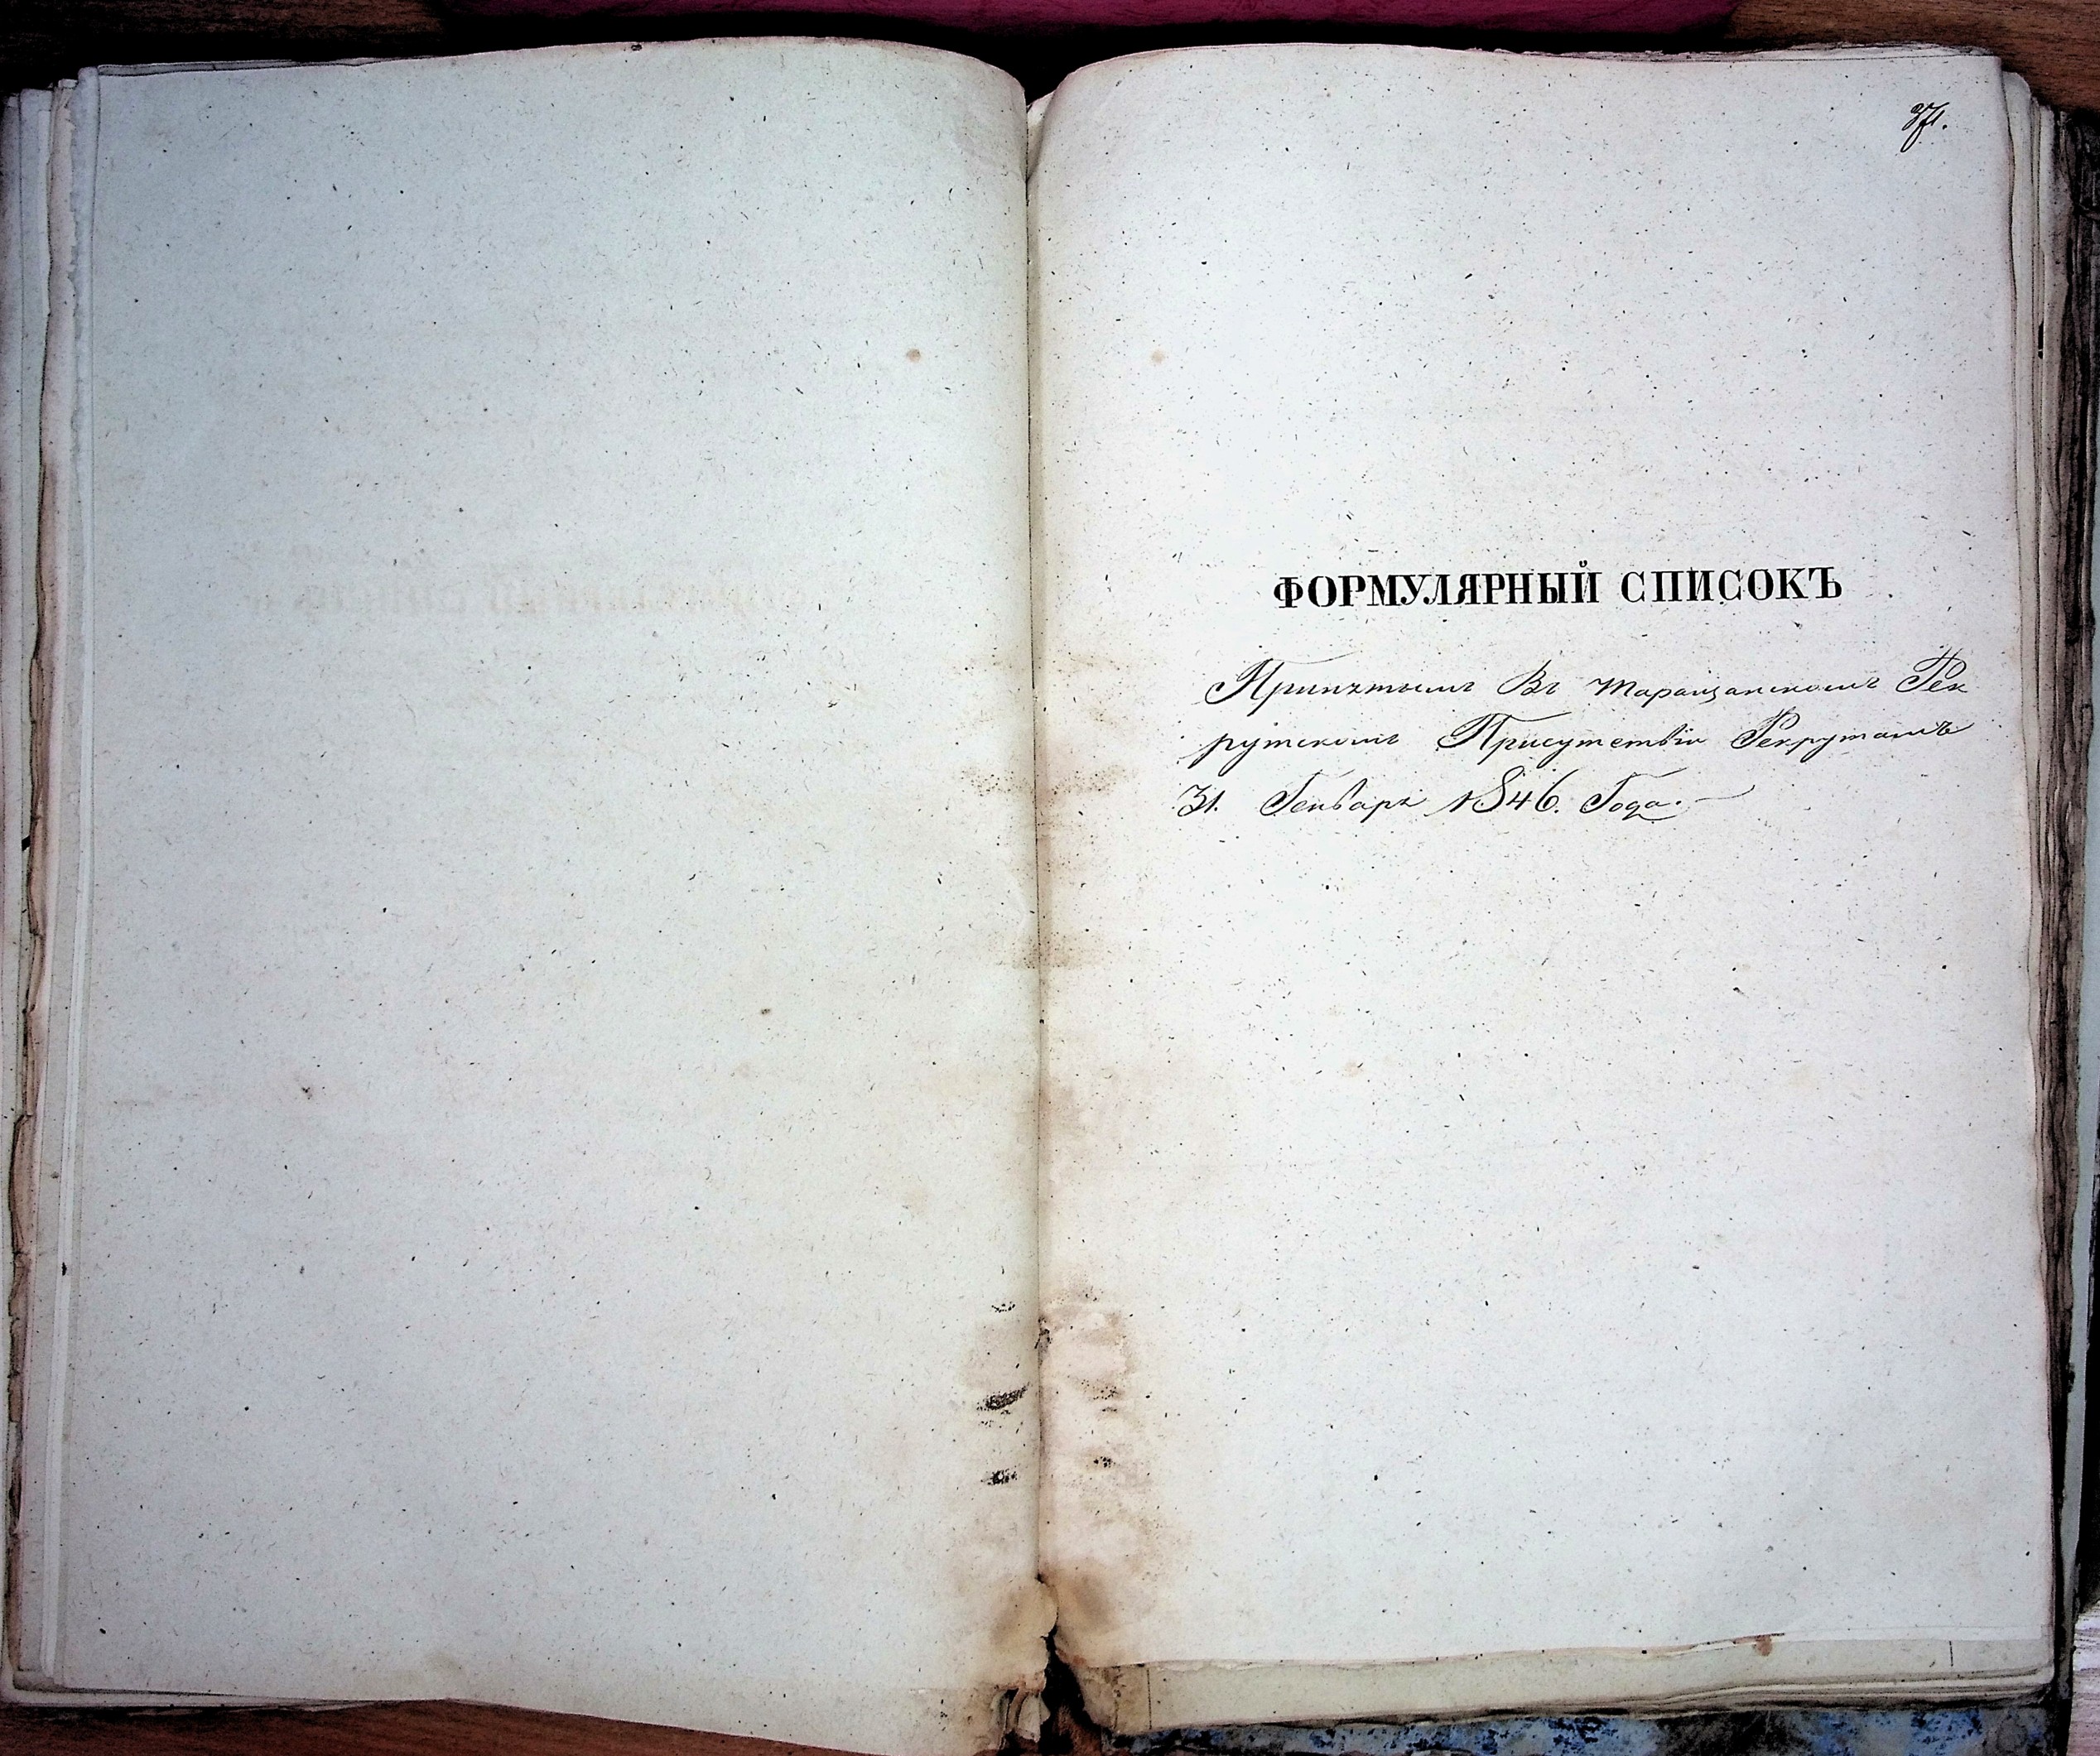 ФОРМУЛЯРНЫЙ СПИСОКЪ
Принятымъ Въ таращанскомъ Рек
рутскомъ Присутствіи Рекрутамъ
31. Генваря 1846. Года. —